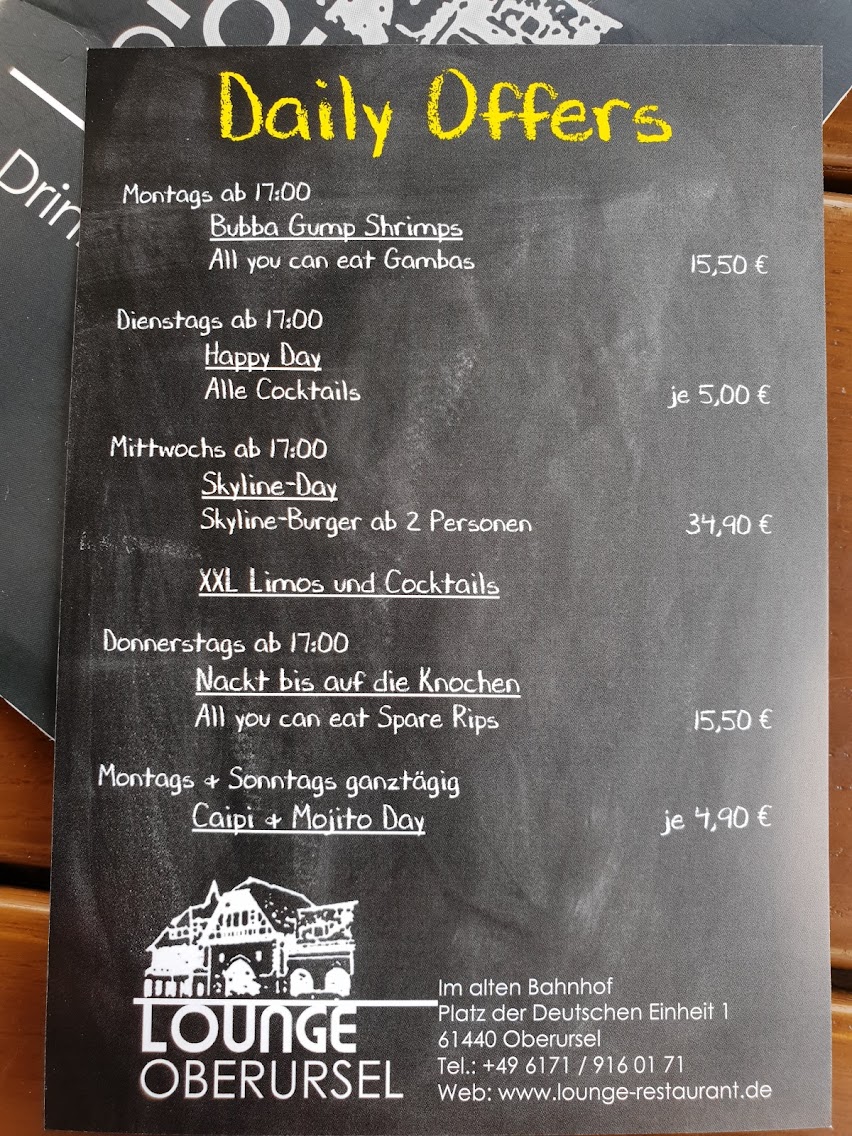 Daily Offers
Montags ab 17:00
Bubba Gump Shrimps
All you can eat Gambas 15,50 €
Dienstags ab 17:00
Happy Day
Alle Cocktails je 5,00 €
Mittwochs ab 17:00
Skyline-Day
Skyline-Burger ab 2 Personen 34,90 €
XXL Limos und Cocktails
Donnerstags ab 17:00
Nackt bis auf die Knochen
All you can eat Spare Rips 15,50 €
Montags + Sonntags ganztägig
Caipi + Mojito Day je 4,90 €
LOUNGE
OBERURSEL
Im alten Bahnhof
Platz der Deutschen Einheit 1
61440 Oberursel
Tel.: +49 6171 / 916 01 71
Web: www.lounge-restaurant.de